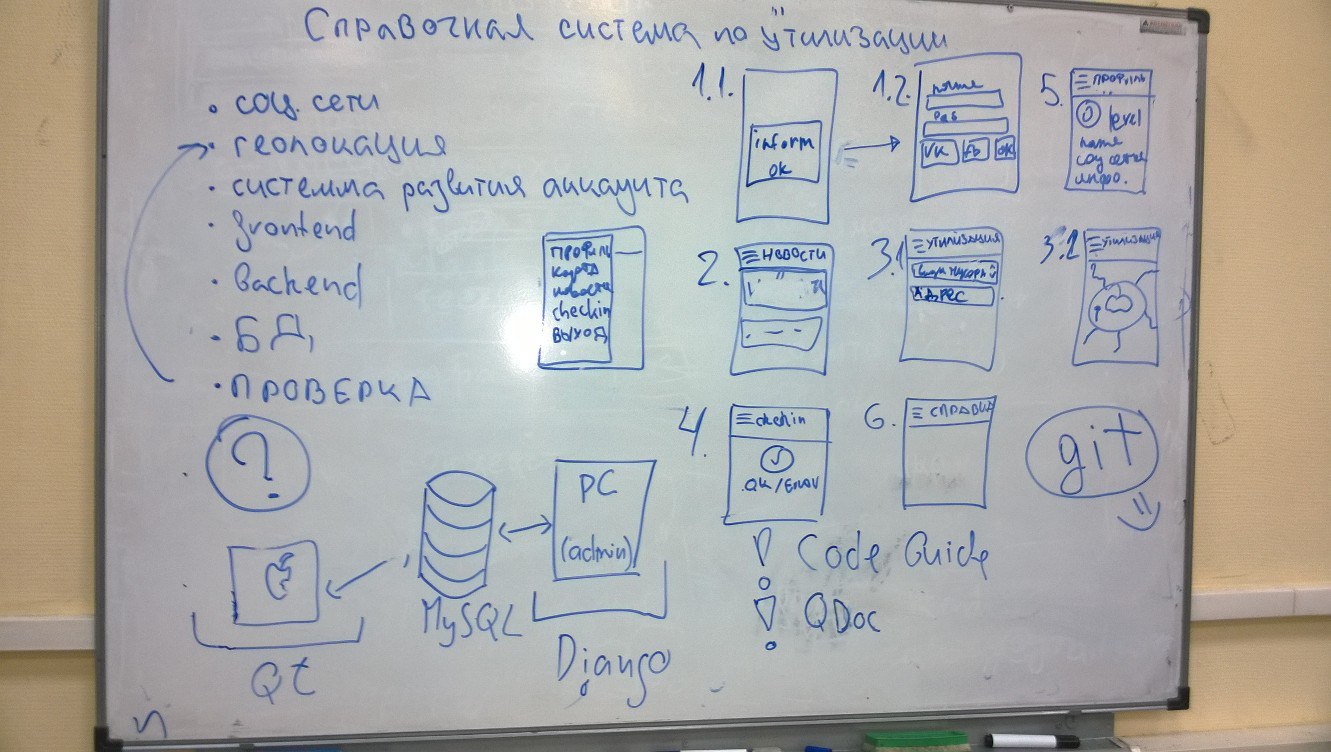 Справочная система по утилизации
• соц. сети
• геолокация
• системма развития аккаунта
• frontend
• backend
• БД,
• ПРОВЕРКА
?
Qt
MySQL
PC
(admin)
Django
ПРОФИЛЬ
новости
checkin
ВЫХОД
1.1.
inform
ok
1.2.
VK
fb
ok
5.
ПРОФИЛЬ
level
name
соц сети
инфо.
2.
НОВОСТИ
3.1
УТИЛИЗАЦИЯ
АДРЕС
3.2
УТИЛИЗАЦИЯ
4.
checkin
OK/Error
6.
СПРАВКА
git
! Code Guide
! QDoc